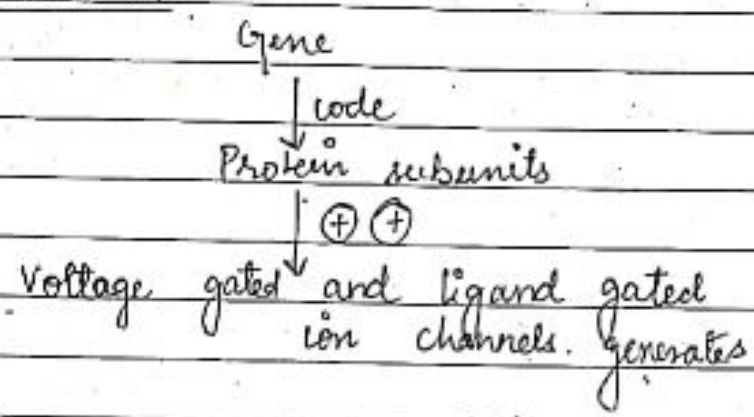 Gene
code
Protein subunits
+ +
Voltage gated and ligand gated
ion channels. generates